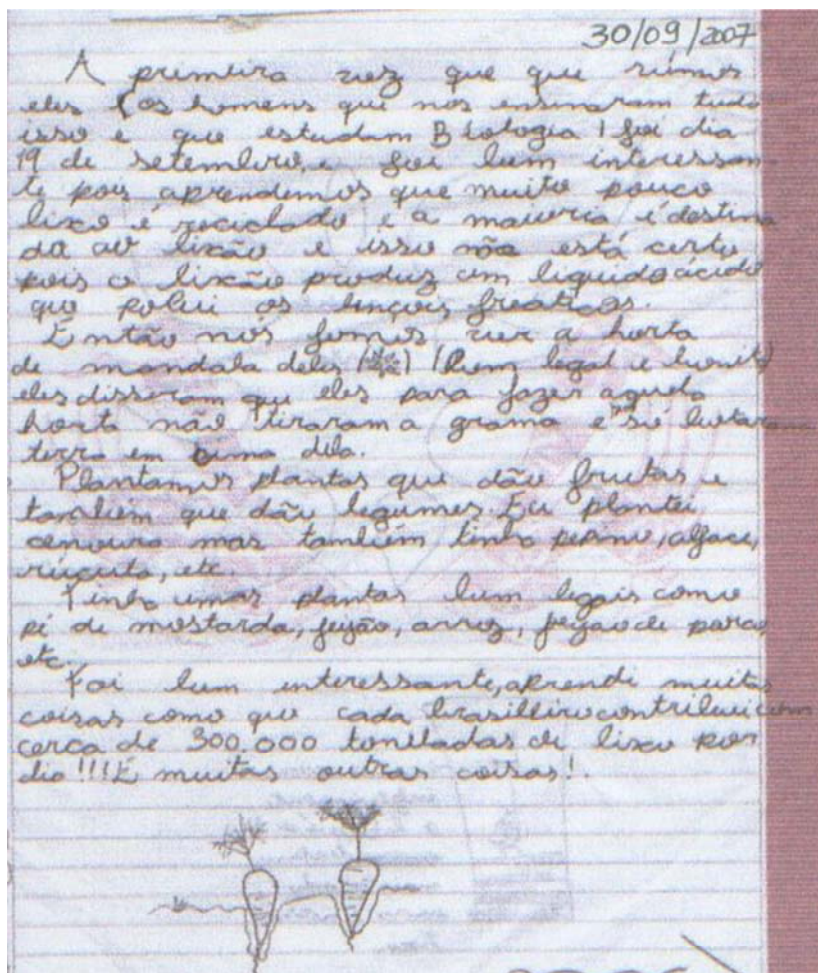 30/09/2007
A primeira vez que que vimos
eles (os homens que nos ensinaram tudo
isso e que estudam Biologia) foi dia
19 de setembro, e foi bem interessan-
te pois aprendemos que muito pouco
lixo é reciclado e a maioria é destina
da ao lixão e isso não está certo
pois o lixão produz um liquido ácido
que polui os lençois freaticos.
Então nós fomos ver a horta
de mandala deles () (bem legal e bonita)
eles disseram que eles para fazer aquela
horta não tiraram a grama e só botaram
terra em cima dela.
Plantamos plantas que dão frutas e
também que dão legumes. Eu plantei
cenoura mas também tinha pepino, alface,
rúcula, etc.
Tinha umas plantas bem legais como
pé de mostarda, feijão, arroz, feijão de porco,
etc.
Foi bem interessante, aprendi muitas
coisas como que cada brasileiro contribui com
cerca de 300.000 toneladas de lixo por
dia!!! E muitas outras coisas!.